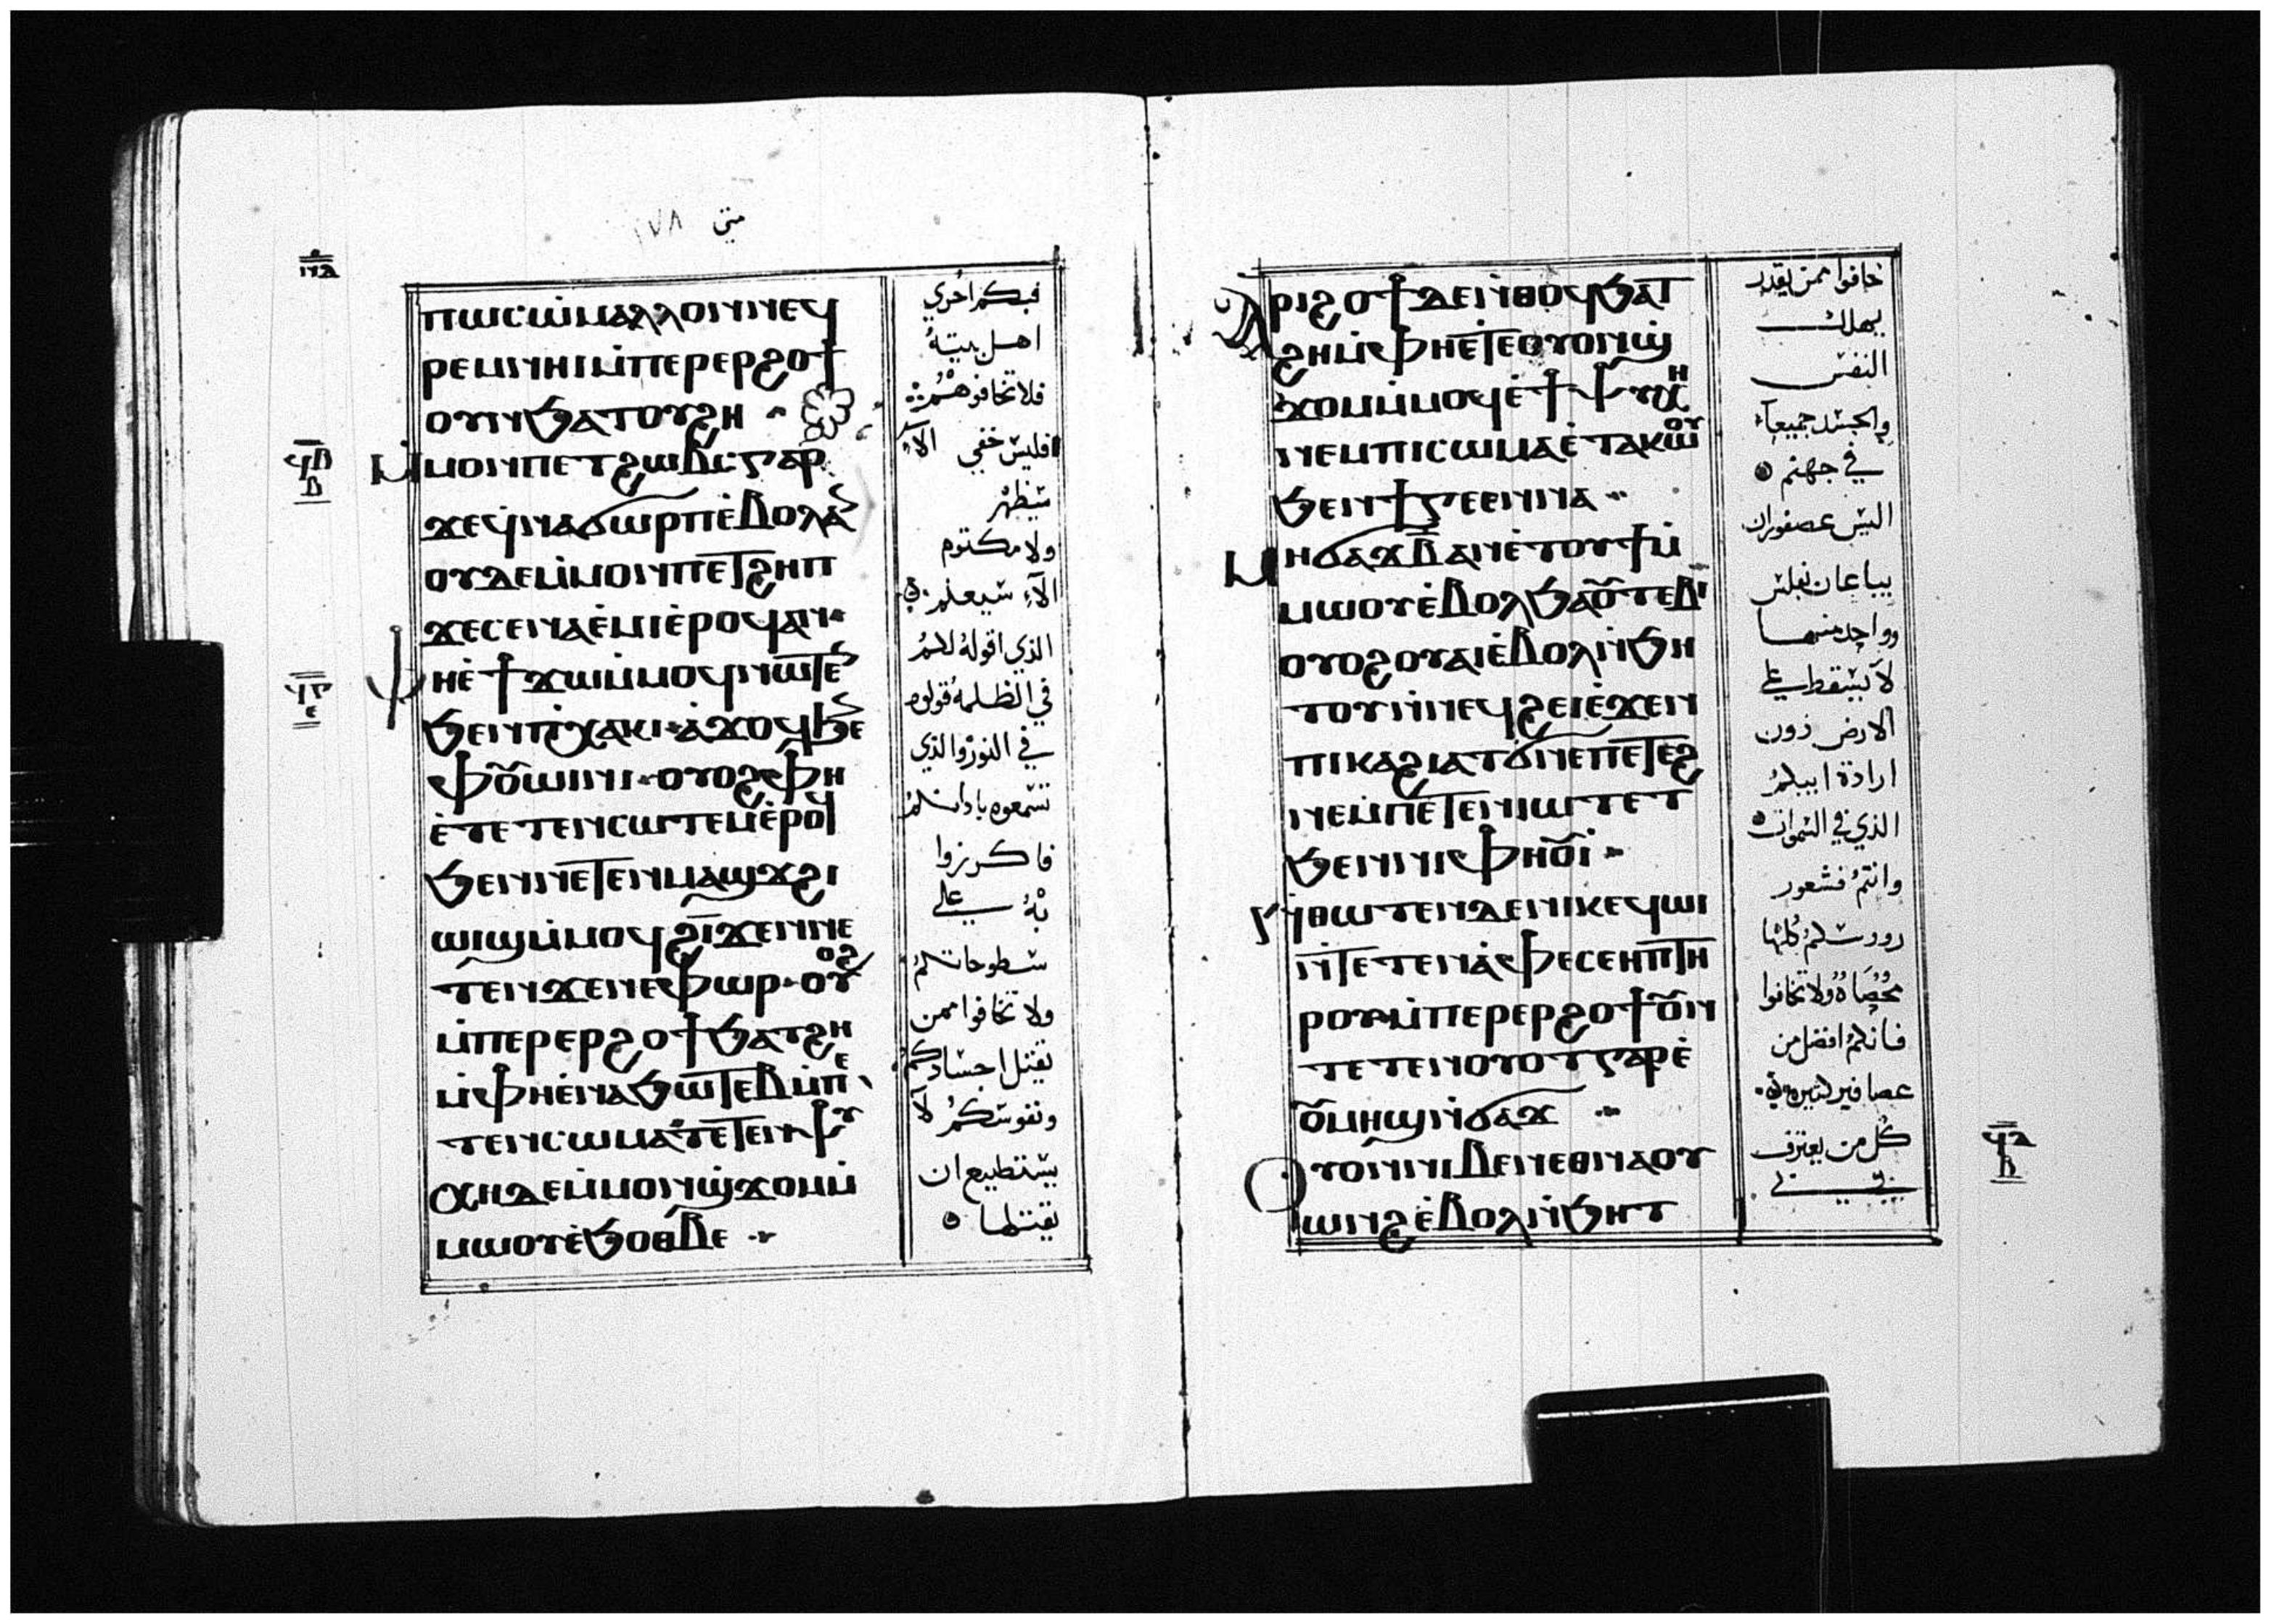 متى ١٧٨
ⲡⲱⲥⲱ̇ⲙⲁⲗⲗⲟⲛⲛⲉϥ
ⲣⲉⲙⲛⲏⲓⲙ̇ⲡⲉⲣⲉⲣϩⲟϯ
ⲟⲩⲛϧⲁⲧⲟⲩϩⲏ
ⲙ̇ⲙⲟⲛⲡⲉⲧϩⲱⲃⲥⲅⲁⲣ
ϫⲉϥ̇ⲛⲁϭⲱⲣⲡⲉ̇ⲃⲟⲗⲁⲛ
ⲟⲩⲇⲉⲙ̇ⲙⲟⲛⲡⲉⲧϩⲏⲡ
ϫⲉⲥⲉⲛⲁⲉ̇ⲙⲓⲉ̇ⲣⲟϥⲁⲛ
ⲫⲏⲉ̇ϯϫⲱⲙ̇ⲙⲟϥⲛⲱⲧⲉⲛ
ϧⲉⲛⲡⲭⲁⲕⲓ ⲁ̇ϫⲟϥϧⲉⲛ
ⲫⲟⲩⲱⲓⲛⲓ ⲟⲩⲟϩⲫⲏ
ⲉ̇ⲧⲉⲧⲉⲛⲥⲱⲧⲉⲙⲉ̇ⲣⲟϥ
ϧⲉⲛⲛⲉⲧⲉⲛⲙⲁϣϫϩⲓ
ⲱⲓϣⲙ̇ⲙⲟϥϩⲓϫⲉⲛⲛⲉ
ⲧⲉⲛϫⲉⲛⲉⲫⲱⲣ ⲟⲩⲟϩ
ⲙ̇ⲡⲉⲣⲉⲣϩⲟϯϧⲁⲧϩⲏ
ⲙ̇ⲫⲏⲉⲛⲁϧⲱⲧⲉⲃⲙ̇ⲡⲉ
ⲧⲉⲛⲥⲱⲙⲁ ⲧⲉⲧⲉⲛⲯⲩ
ⲭⲏⲇⲉⲙ̇ⲙⲟⲛϣϫⲟⲙⲙ̇
ⲙⲱⲟⲩⲉ̇ϧⲟⲑⲃⲉ
فبكم احري
اهل بيته
فلا تخافوهم
فليس خفي الا
سيظهر
ولا مكتوم
الا سيعلم
الذي اقوله لكم
في الظلمه قولوه
في النور والذي
تسمعوه باذانكم
فاكرزوا
به علي
سطوحاتكم
ولا تخافوا ممن
يقتل اجسادكم
ونفوسكم لا
يستطيع ان
يقتلها
ⲁⲣⲓϩⲟϯⲇⲉⲛ̇ⲑⲟϥϧⲁⲧ
ϩⲏⲙ̇ⲫⲏⲉ̇ⲧⲉⲟⲩⲟⲛϣ
ϫⲟⲙⲙ̇ⲙⲟϥⲉ̇ϯⲯⲩⲭⲏ
ⲛⲉⲙⲡⲓⲥⲱⲙⲁⲉ̇ⲧⲁⲕⲱⲟⲩ
ϧⲉⲛϯⲅⲉⲉⲛⲛⲁ
ⲙⲏϭⲁϫⲃ̅ⲁⲛⲉ̇ⲧⲟⲩϯⲙ̇
ⲙⲱⲟⲩⲉ̇ⲃⲟⲗϧⲁⲟⲩⲧⲉⲃⲓ
ⲟⲩⲟϩⲟⲩⲁⲓⲉ̇ⲃⲟⲗⲛ̇ϧⲏ
ⲧⲟⲩⲛ̇ⲛⲉϥϩⲉⲓⲉ̇ϫⲉⲛ
ⲡⲓⲕⲁϩⲓⲁⲧϭⲛⲉⲡⲉⲧⲉϩ
ⲛⲉⲙ̇ⲡⲉⲧⲉⲛⲓⲱⲧⲉⲧ
ϧⲉⲛⲛⲓⲫⲏⲟⲩⲓ̇
ⲛ̇ⲑⲱⲧⲉⲛⲇⲉⲛⲓⲕⲉϥⲱⲓ
ⲛ̇ⲧⲉⲧⲉⲛⲁ̇ⲫⲉⲥⲉⲏⲡⲧⲏ
ⲣⲟⲩ ⲙ̇ⲡⲉⲣⲉⲣϩⲟϯⲟⲩⲛ
ⲧⲉⲧⲉⲛⲟⲩⲟⲧⲅⲁⲣⲉ̇
ⲟⲩⲙⲏϣⲛ̇ϭⲁϫ
ⲟⲩⲟⲛⲛⲓⲃⲉⲛⲉⲑⲛⲁⲟⲩ
ⲱⲛϩⲉ̇ⲃⲟⲗⲛ̇ϧⲏⲧ
خافوا ممن يقدر
يهلك
النفس
والجسد جميعا
في جهنم
اليس عصفوران
يباعان بفلس
وواحد منهما
لا يسقط علي
الارض دون
ارادة ابيكم
الذي في السموات
وانتم فشعور
روسكم كلها
محصاه ولا تخافوا
فانكم افضل من
عصافير كثيره
كل من يعترف
بي